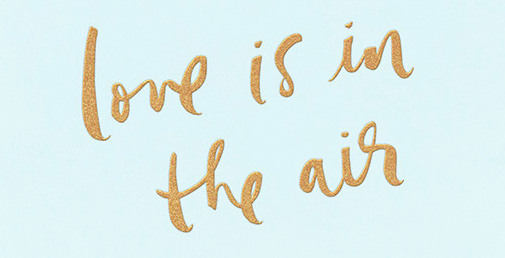 love is in
the air